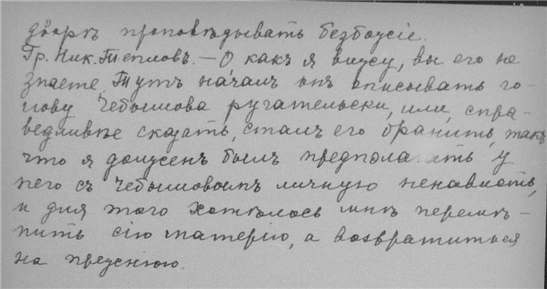 дворѣ проповѣдывать безбожіе.
Гр. Ник. Тепловъ. — О какъ я вижу, вы его не
знаете. Тутъ началъ онъ описывать го-
лову Чебышова ругательски, или, спра-
ведливѣе сказать, сталъ его бранить, такъ
что я долженъ былъ предполагать у
него съ Чебышовымъ личную ненависть,
и для того хотѣлось мнѣ перемѣ-
нить сію матерію, а возвратиться
на прежнюю.